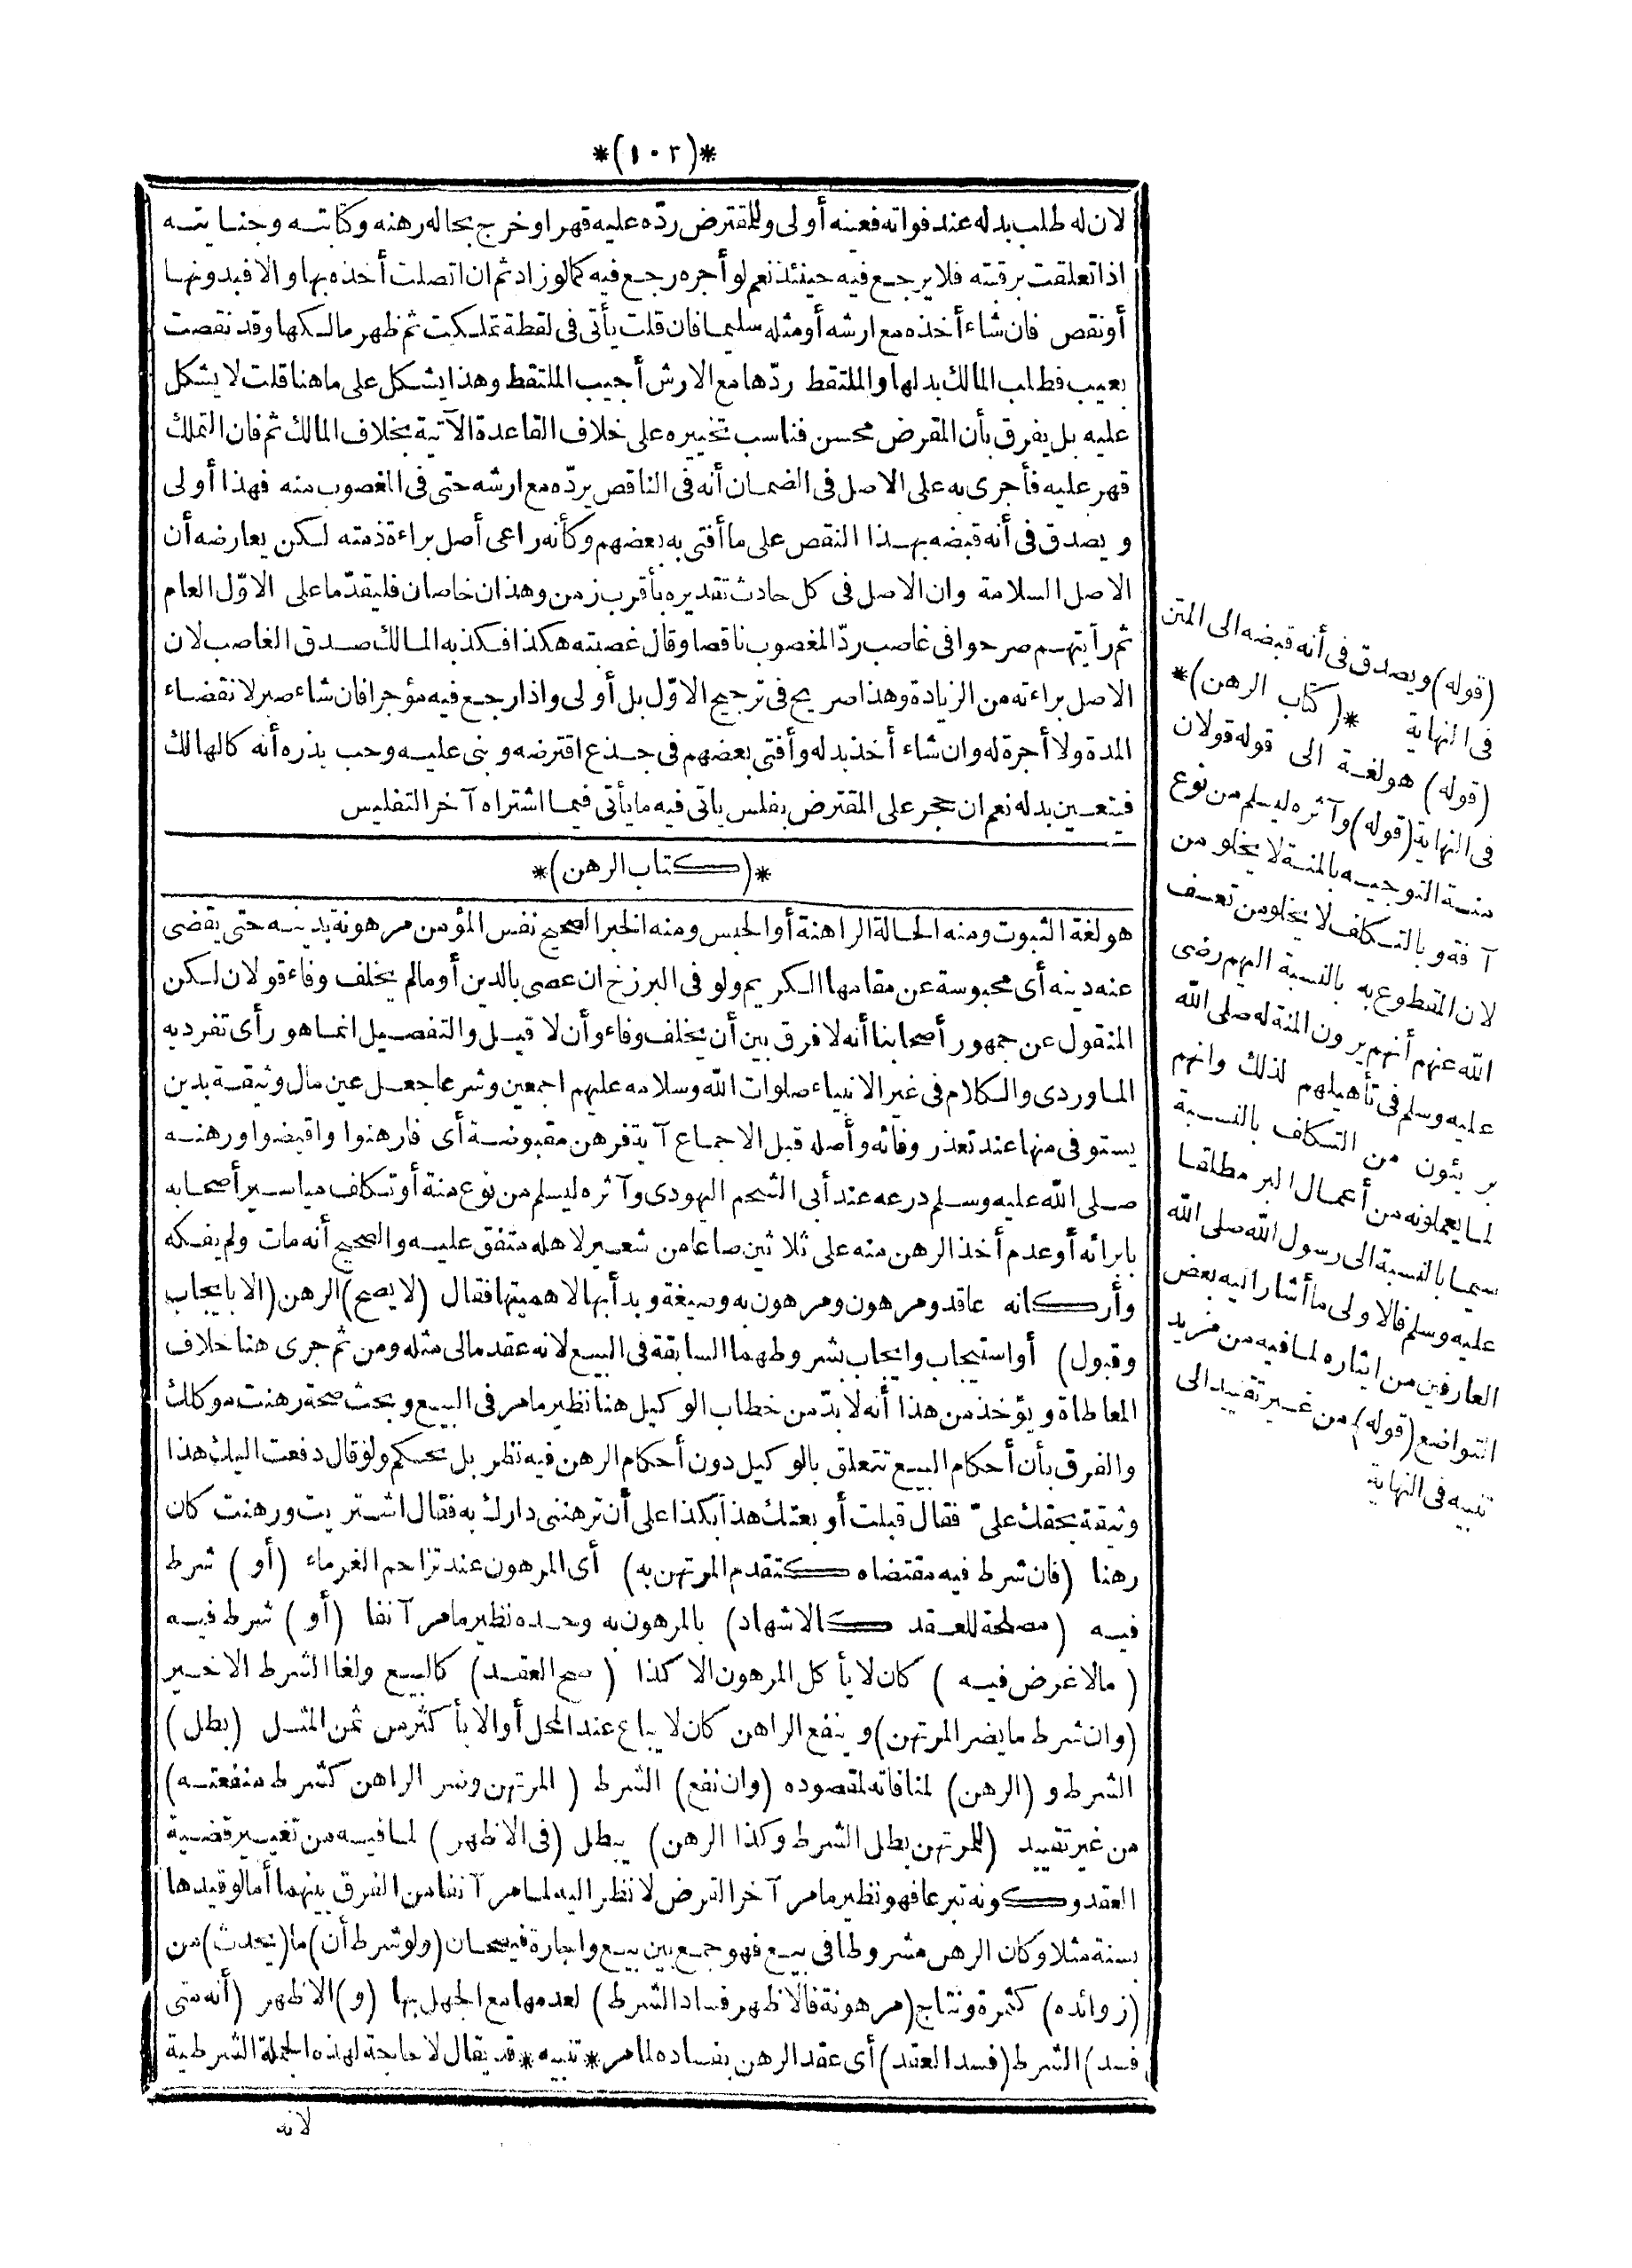 *(١٠٢)*
لان له طلب بدله عند فواته فعينه أولى وللمقترض ردّه عليه قهرا وخرج بحاله رهنه وكتابته وجنايته
اذا تعلقت برقبته فلا يرجع فيه حينئذ نعم لو أجره رجع فيه كما لو زاد ثم ان اتصلت أخذه بها والا فبدونها
أو نقص فان شاء أخذه مع ارشه أو مثله سليما فان قلت يأتى فى لقطة تملكت ثم ظهر مالكها وقد نقصت
بعيب فطلب المالك بدلها والملتقط ردّها مع الارش أجيب الملتقط وهذا يشكل على ما هنا قلت لا يشكل
عليه بل يفرق بأن المقرض محسن فناسب تخييره على خلاف القاعدة الآتية بخلاف المالك ثم فان التملك
قهر عليه فأجرى به على الاصل فى الضمان أنه فى الناقص يردّه مع ارشه حتى فى الغصوب منه فهذا أولى
ويصدق فى أنه قبضه بهذا النقص على ما أفتى به بعضهم وكأنه راعى أصل براءة ذمته لكن يعارضه أن
الاصل السلامة وان الاصل فى كل حادث تقديره بأقرب زمن وهذان خاصان فليقدّما على الاوّل العام
ثم رأيتهم صرحوا فى غاصب ردّ المغصوب ناقصا وقال غصبته هكذا فكذبه المالك صدق الغاصب لان
الاصل براءته من الزيادة وهذا صريح فى ترجيح الاوّل بل أولى واذا رجع فيه مؤجرا فان شاء صبر لانقضاء
المدة ولا أجرة له وان شاء أخذ بدله وأفتى بعضهم فى جذع اقترضه وبنى عليه وحب بذره أنه كالهالك
فيتعين بدله نعم ان حجر على المقترض بفلس ياتى فيه ما يأتى فيما اشتراه آخر التفليس
*(كتاب الرهن)*
هو لغة الثبوت ومنه الحالة الراهنة أو الحبس ومنه الخبر الصحيح نفس المؤمن مرهونة بدينه حتى يقضى
عنه دينه أى محبوسة عن مقامها الكريم ولو فى البرزخ ان عصى بالدين أو مالم يخلف وفاء قولان لكن
المنقول عن جمهور أصحابنا أنه لا فرق بين أن يخلف وفاء وأن لا قيل والتفصيل انما هو رأى تفرد به
الماوردى والكلام فى غير الانبياء صلوات الله وسلامه عليهم اجمعين وشرعا جعل عين مال وثيقة بدين
يستوفى منها عند تعذر وفائه وأصله قبل الاجماع آية فرهن مقبوضة أى فارهنوا واقبضوا ورهنه
صلى الله عليه وسلم درعه عند أبى الشحم اليهودى وآثره ليسلم من نوع منة أو تكلف مياسير أصحابه
بابرائه أو عدم أخذ الرهن منه على ثلاثين صاعا من شعير لاهله متفق عليه والصحيح أنه مات ولم يفكه
وأركانه عاقد ومرهون ومرهون به وصيغة وبدأ بها لاهميتها فقال (لا يصح) الرهن (الا بايجاب
وقبول) أو استيجاب وايجاب بشروطهما السابقة فى البيع لانه عقد مالى مثله ومن ثم جرى هنا خلاف
المعاطاة ويؤخذ من هذا أنه لا بدّ من خطاب الوكيل هنا نظير ما مر فى البيع وبحث صحة رهنت موكلك
والفرق بأن أحكام البيع تتعلق بالوكيل دون أحكام الرهن فيه نظر بل تحكم ولو قال دفعت اليك هذا
وثيقة بحقك علىّ فقال قبلت أو بعتك هذا بكذا على أن ترهننى دارك به فقال اشتريت ورهنت كان
رهنا (فان شرط فيه مقتضاه كتقدم المرتهن به) أى المرهون عند تزاحم الغرماء (أو) شرط
فيه (مصلحة للعقد كالاشهاد) بالمرهون به وحده نظير ما مر آنفا (أو) شرط فيه
(مالا غرض فيه) كان لا يأكل المرهون الا كذا (صح العقد) كالبيع ولغا الشرط الاخير
(وان شرط ما يضر المرتهن) وينفع الراهن كان لا يباع عند المحل أو الا بأكثر من ثمن المثل (بطل)
الشرط و (الرهن) لمنافاته لمقصوده (وان نفع) الشرط (المرتهن وضر الراهن كشرط منفعته)
من غير تقييد (للمرتهن بطل الشرط وكذا الرهن) يبطل (فى الاظهر) لما فيه من تغيير قضية
العقد وكونه تبرعا فهو نظير ما مر آخر القرض لا نظر اليه لما مر آنفا من الفرق بينهما أما لو قيدها
بسنة مثلا وكان الرهن مشروطا فى بيع فهو جمع بين بيع واجارة فيصحان (ولو شرط أن) ما (يحدث) من
(زوائده) كثمرة ونتاج (مرهونة فالاظهر فساد الشرط) لعدمها مع الجهل بها (و) الاظهر (أنه متى
فسد) الشرط (فسد العقد) أى عقد الرهن بفساده لما مر *تنبيه* قد يقال لا حاجة لهذه الجملة الشرطية
لانه
(قوله) ويصدق فى أنه قبضه الى المتن
فى النهاية *(كتاب الرهن)*
(قوله) هو لغة الى قوله قولان
فى النهاية (قوله) وآثره ليسلم من نوع
منة التوجيه بالمنة لا يخلو من
آفة وبالتكلف لا يخلو من تعسف
لان المقطوع به بالنسبة اليهم رضى
الله عنهم أنهم يرون المنة له صلى الله
عليه وسلم فى تأهيلهم لذلك وانهم
بريئون من التكلف بالنسبة
لما يعملونه من أعمال البر مطلقا
سيما بالنسبة الى رسول الله صلى الله
عليه وسلم فالاولى ما أشار اليه بعض
العارفين من ايثاره لما فيه من مزيد
التواضع (قوله) من غير تقييد الى
تنبيه فى النهاية